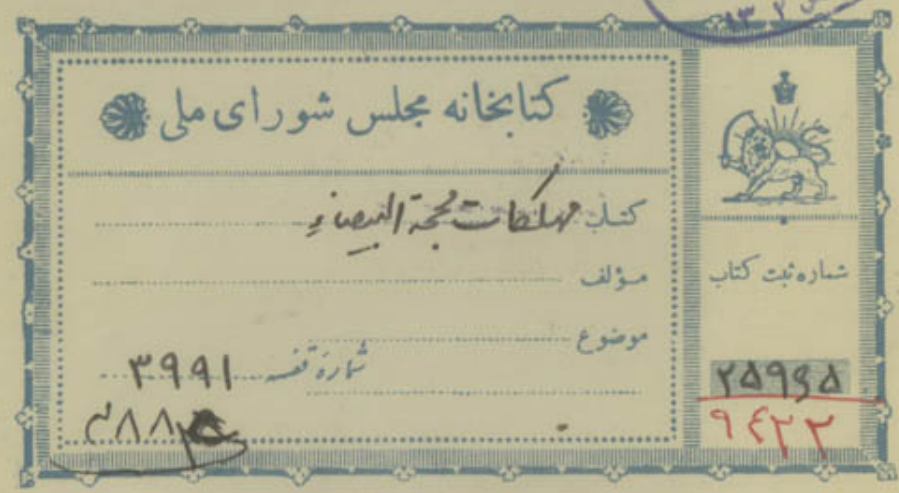 کتابخانه مجلس شورای ملی
کتاب مهلکات محجة البیضاء
مؤلف
موضوع
شماره قفسه ۳۹۹۱
شماره ثبت کتاب
۲۵۹۶۵
۹۴۲۲